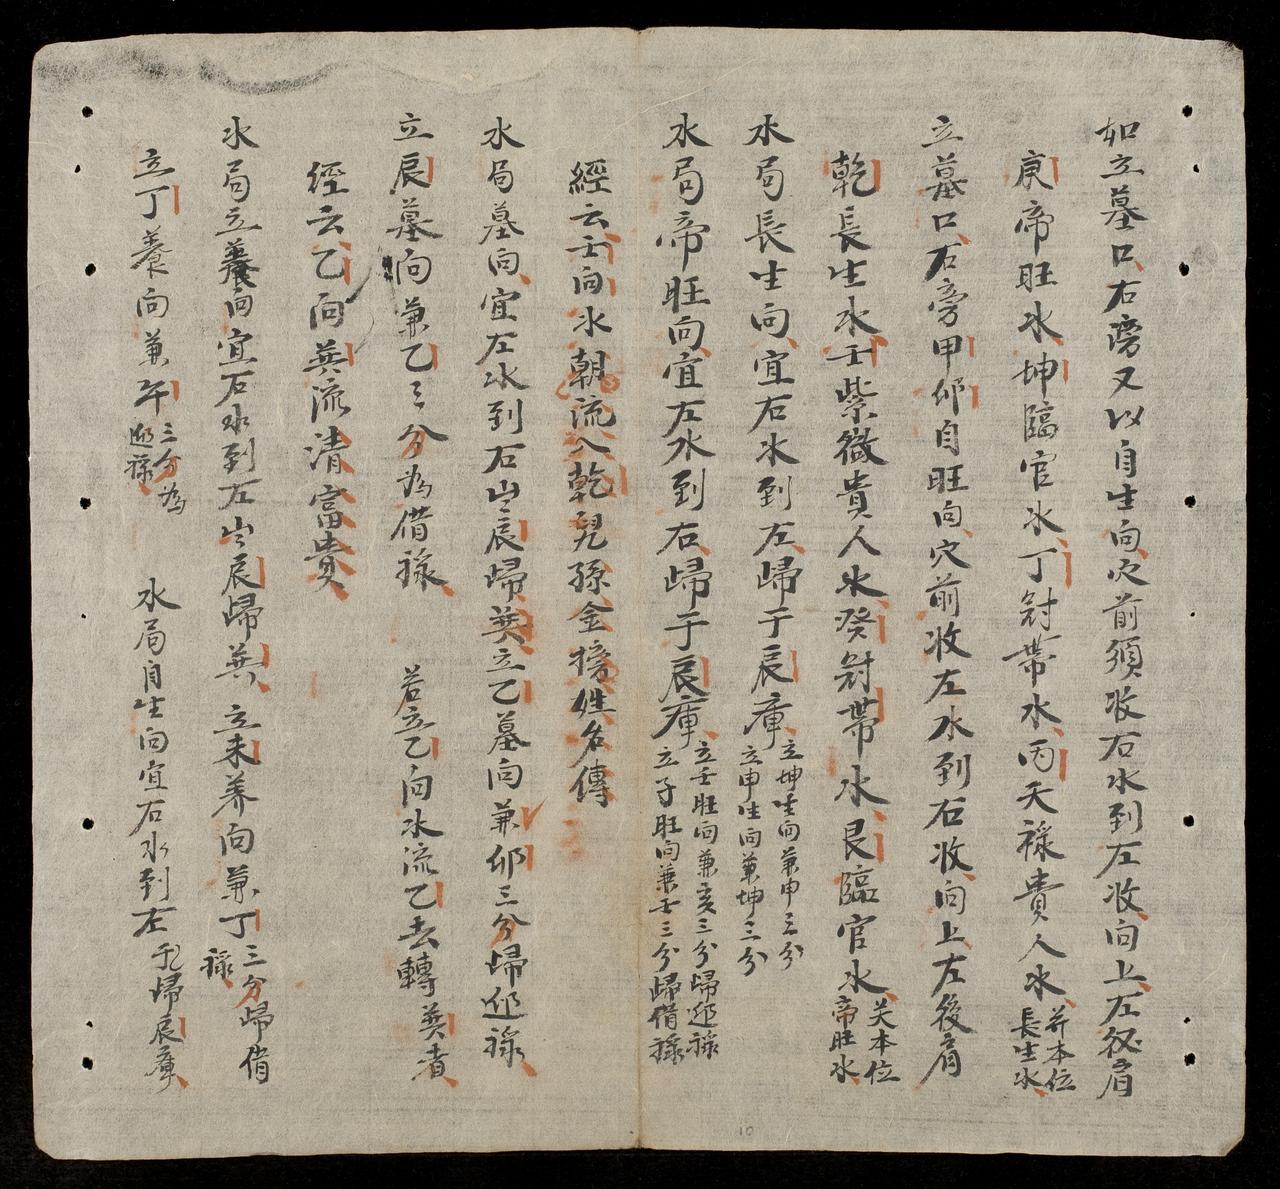 如立墓口右旁又以自生向穴前須收右水到左收向上左後肩
庚帝旺水坤臨官水丁冠帶水丙天祿貴人水并本位長生水
立墓口右旁甲卯自旺向穴前收左水到右收向上左後肩
乾長生水壬紫微貴人水癸冠帶水艮臨官水关本位帝旺水
水局長生向宜右水到左歸于辰庫立坤生向兼申三分立申生向兼坤三分
水局帝旺向宜左水到右歸于辰庫立壬旺向兼亥三分歸迎祿立子旺向兼壬三分歸借祿
經云壬向水朝流入乾兒孫金榜姓名傳
水局墓向宜左水到右出辰歸巽立乙墓向兼卯三分歸迎祿
立辰墓向兼乙三分為借祿 若立乙向水流乙去轉巽者
經云乙向巽流清富貴
水局立養向宜右水到左出辰歸巽 立未养向兼丁三分歸借祿
立丁養向兼午三分為迎祿 水局自生向宜右水到左歸辰庫